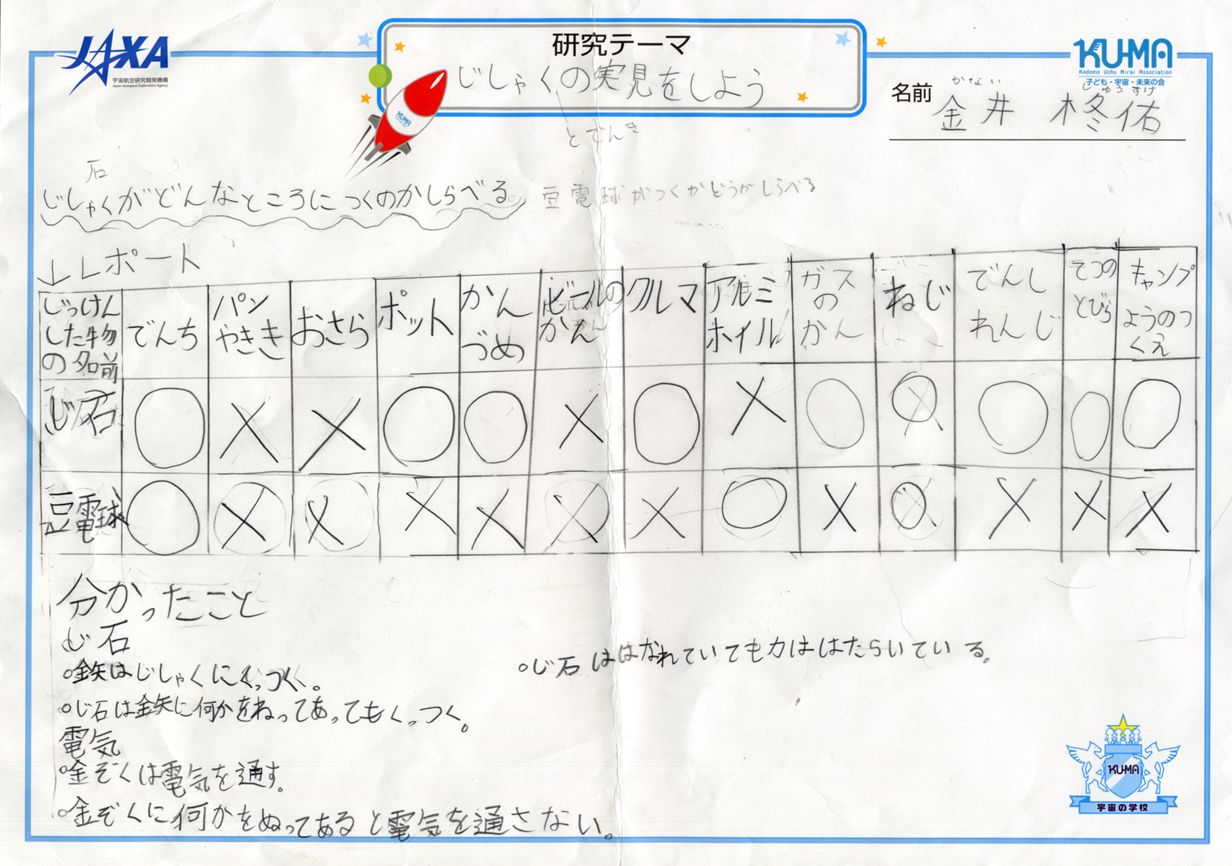 JAXA
宇宙航空研究開発機構
Japan Aerospace Exploration Agency
研究テーマ
じしゃくの実見をしよう
とでんき
KUMA
KUMA
Kodomo Uchu Mirai Association
子ども・宇宙・未来の会
名前
かない しゅうすけ
金井 柊佑
石
じしゃくがどんなところにつくのかしらべる。豆電球がつくかどうかしらべる
↓レポート
じっけんした物の名前 でんち パンやきき おさら ポット かんづめ ビールのかん クルマ アルミホイル ガスのかん ねじ でんしれんじ てつのとびら キャンプようのつくえ
じ石 ○ × × ○ ○ × ○ × ○ ○ ○ ○ ○
豆電球 ○ × × × × × × ○ × ○ × × ×
分かったこと
じ石
○鉄はじしゃくにくっつく。
○じ石ははなれていても力ははたらいている。
○じ石は鉄に何かをぬってあってもくっつく。
電気
○金ぞくは電気を通す。
○金ぞくに何かをぬってあると電気を通さない。
KUMA
宇宙の学校